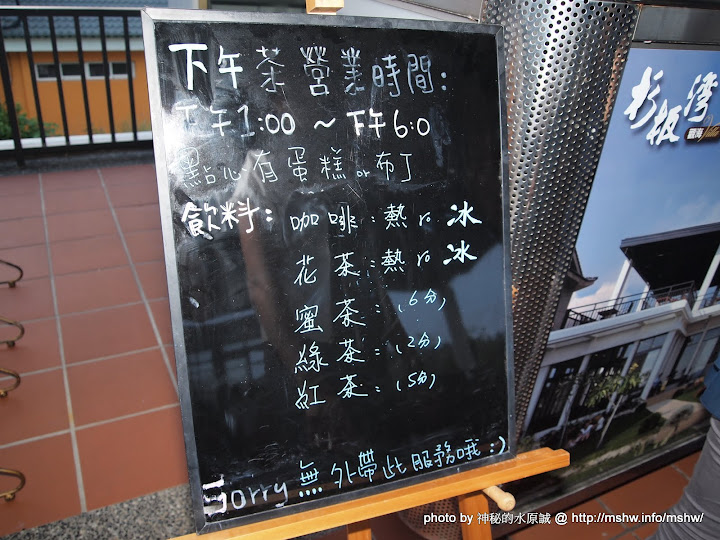 下午茶營業時間:
下午1:00 ~ 下午6:0
點心有蛋糕or布丁
飲料: 咖啡:熱 ro 冰
花茶:熱 ro 冰
蜜茶:(6分)
綠茶:(2分)
紅茶:(5分)
Sorry 無外帶此服務哦:)
杉板灣
photo by 神秘的水原誠 @ http://mshw.info/mshw/